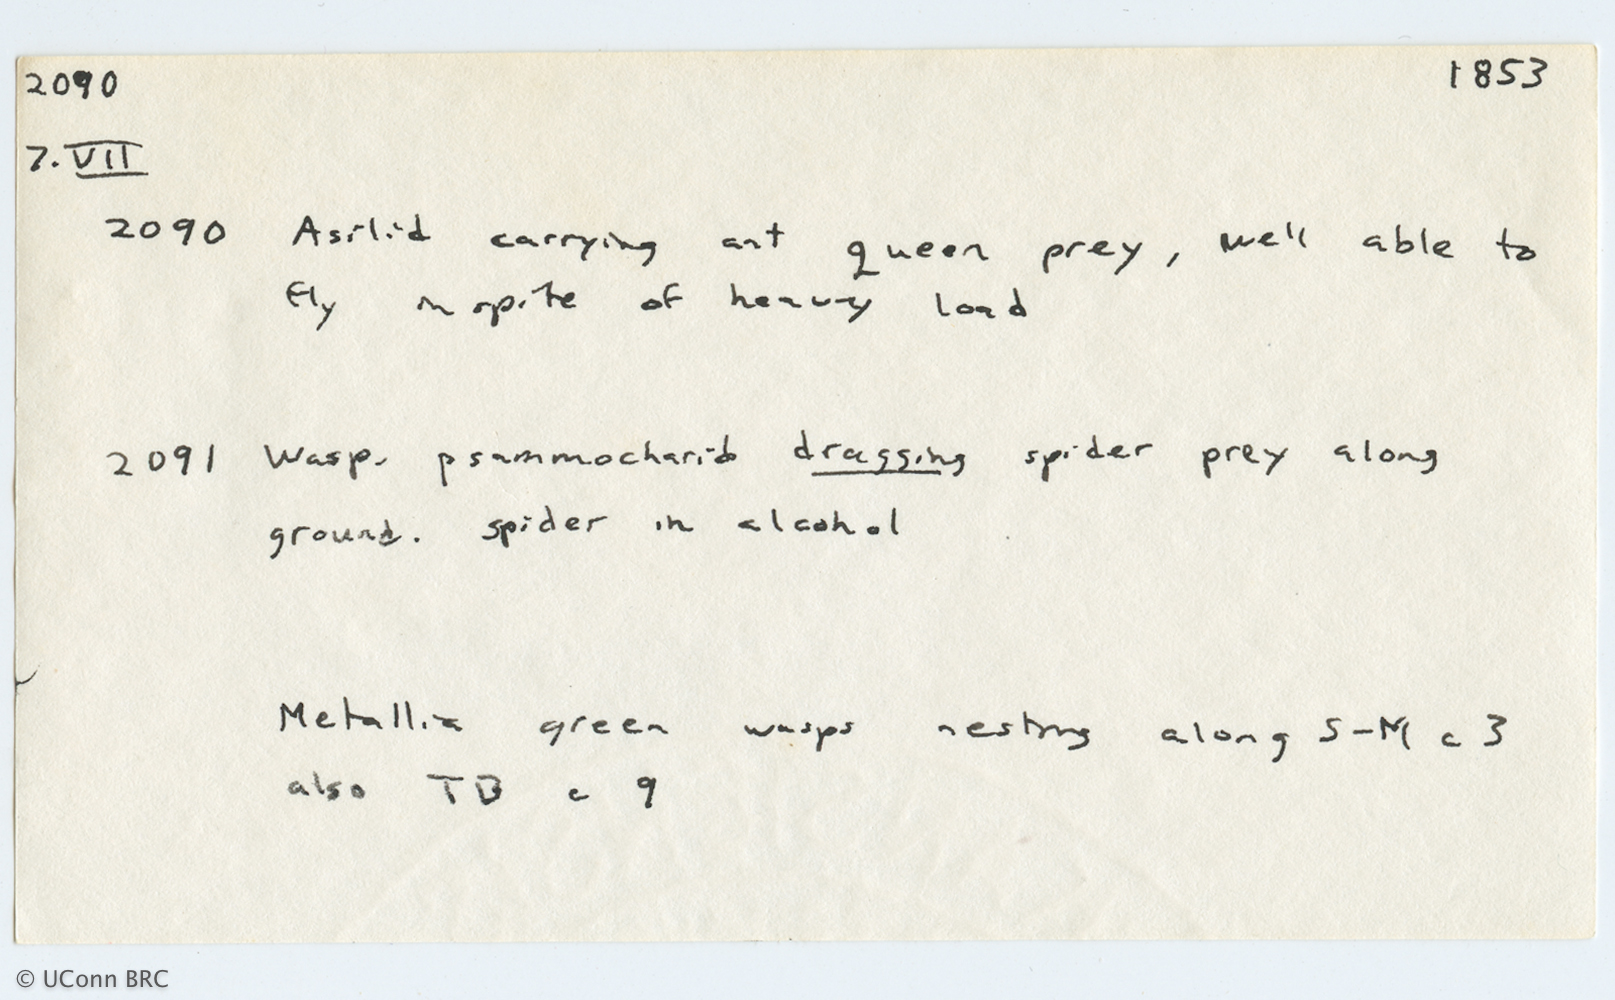 2090 1853
7.VII
2090 Asilid carrying ant queen prey, well able to
fly in spite of heavy load
2091 Wasp. psammocharid dragging spider prey along
ground. spider in alcohol
Metallic green wasps nesting along S-M c 3
also TB c 9
© UConn BRC